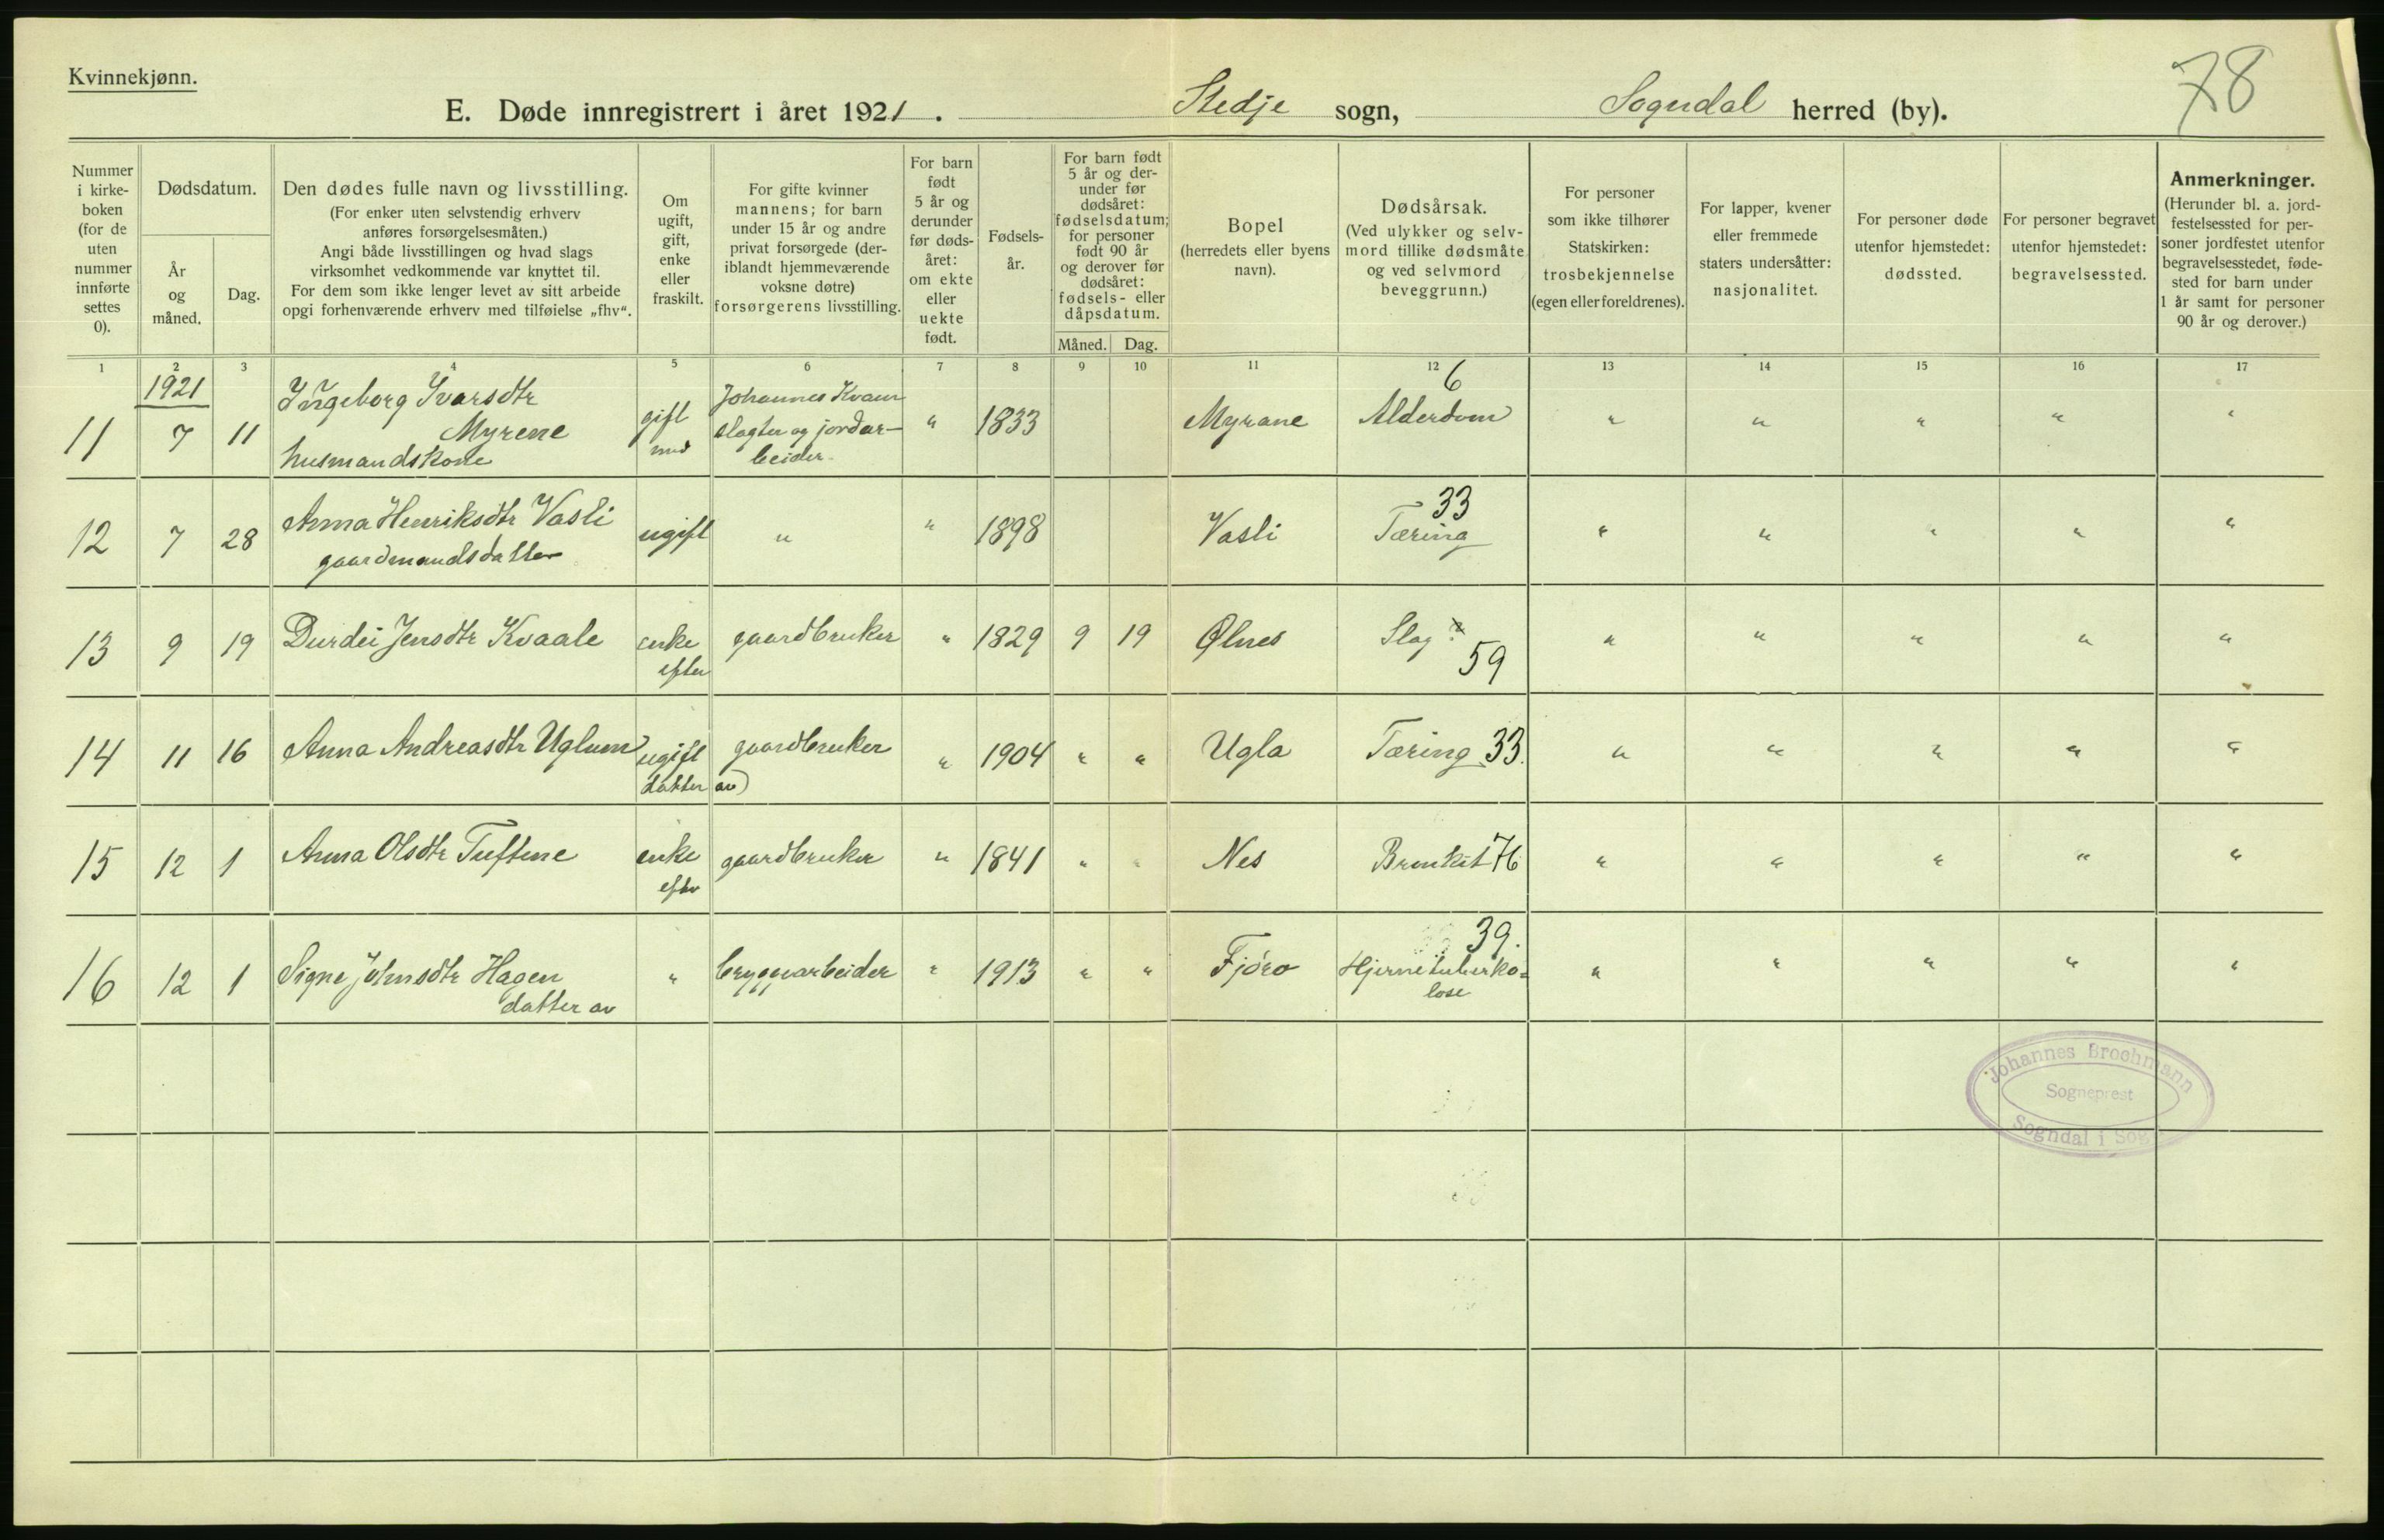 Kvinnekjønn.
78
E. Døde innregistrert i året 1921. Stedje sogn, Sogndal herred (by).
Nummer i kirke- boken (for de uten nummer innførte settes 0).
Dødsdatum.
År og måned.
Dag.
Den dødes fulle navn og livsstilling.
(For enker uten selvstendig erhverv
anføres forsørgelsesmåten.)
Angi både livsstillingen og hvad slags
virksomhet vedkommende var knyttet til.
For dem som ikke lenger levet av sitt arbeide
opgi forhenværende erhverv med tilføielse „fhv“.
Om ugift, gift, enke eller fraskilt.
For gifte kvinner
mannens; for barn
under 15 år og andre
privat forsørgede (der-
iblandt hjemmeværende
voksne døtre)
forsørgerens livsstilling.
For barn født 5 år og derunder før døds- året: om ekte eller uekte født.
Fødsels- år.
For barn født
5 år og der-
under før
dødsåret:
fødselsdatum;
for personer
født 90 år
og derover før
dødsåret:
fødsels- eller
dåpsdatum.
Måned. Dag.
Bopel
(herredets eller byens
navn).
Dødsårsak.
(Ved ulykker og selv-
mord tillike dødsmåte
og ved selvmord
beveggrunn.)
For personer
som ikke tilhører
Statskirken:
trosbekjennelse
(egen eller foreldrenes).
For lapper, kvener
eller fremmede
staters undersåtter:
nasjonalitet.
For personer døde
utenfor hjemstedet:
dødssted.
For personer begravet
utenfor hjemstedet:
begravelsessted.
Anmerkninger.
(Herunder bl. a. jord-
festelsessted for per-
soner jordfestet utenfor
begravelsesstedet, føde-
sted for barn under
1 år samt for personer
90 år og derover.)
1 2 3 4 5 6 7 8 9 10 11 12 13 14 15 16 17
1921
11 7 11 Ingeborg Ivarsdtr Myrene husmandskone gift med Johannes Kvam slagter og jordar- beider " 1833 Myrane 6 Alderdom " " " " "
12 7 28 Anna Henriksdtr Vasli gaardmandsdatter ugift " " 1898 Vasli 33 Tæring " " " " "
13 9 19 Durdei Jensdtr Kvaale enke efter gaardbruker " 1829 9 19 Ølnes Slag ? 59 " " " " "
14 11 16 Anna Andreasdtr Uglum ugift datter av) gaardbruker " 1904 " " Ugla Tæring 33. " " " " "
15 12 1 Anna Olsdtr Tuftene enke efter gaardbruker " 1841 " " Nes Bronkit 76 " " " " "
16 12 1 Signe Johnsdtr Hagen datter av " bryggearbeider " 1913 " " Fjöro 39. Hjernetuberko= lose " " " " "
Johannes Brochmann
Sogneprest
Sogndal i Sogn